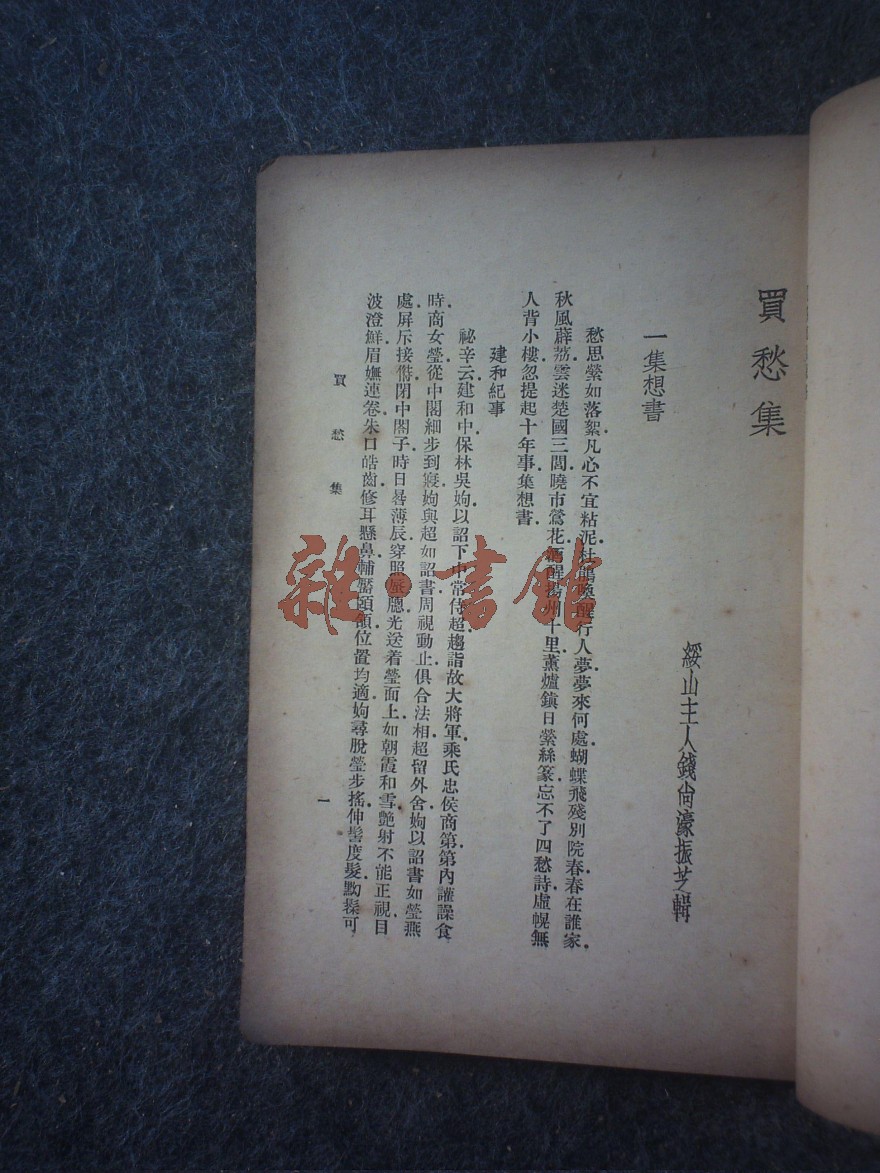 買愁集
綏山主人錢尙濠振芝輯
一集想書
愁思縈如落絮凡心不宜粘泥杜鵑喚醒行人夢夢來何處蝴蝶飛殘別院春春在誰家
秋風薜荔雲迷楚國三閭曉市鶯花酒醒揚州十里薰爐鎮日縈絲篆忘不了四愁詩虛幌無
人背小樓忽提起十年事集想書
建和紀事
祕辛云建和中保林吳姁以詔下中常侍超趨詣故大將軍乘氏忠侯商第第內讙譟食
時商女瑩從中閤細步到寢姁與超如詔書周視動止俱合法相超留外舍姁以詔書如瑩燕
處屏斥接偫閉中閤子時日晷薄辰穿照蜃牕光送着瑩面上如朝霞和雪艷射不能正視目
波澄鮮眉嫵連卷朱口皓齒修耳懸鼻輔靨頤頷位置均適姁尋脫瑩步搖伸髻度髮黝髹可
買愁集
一
雜·書館